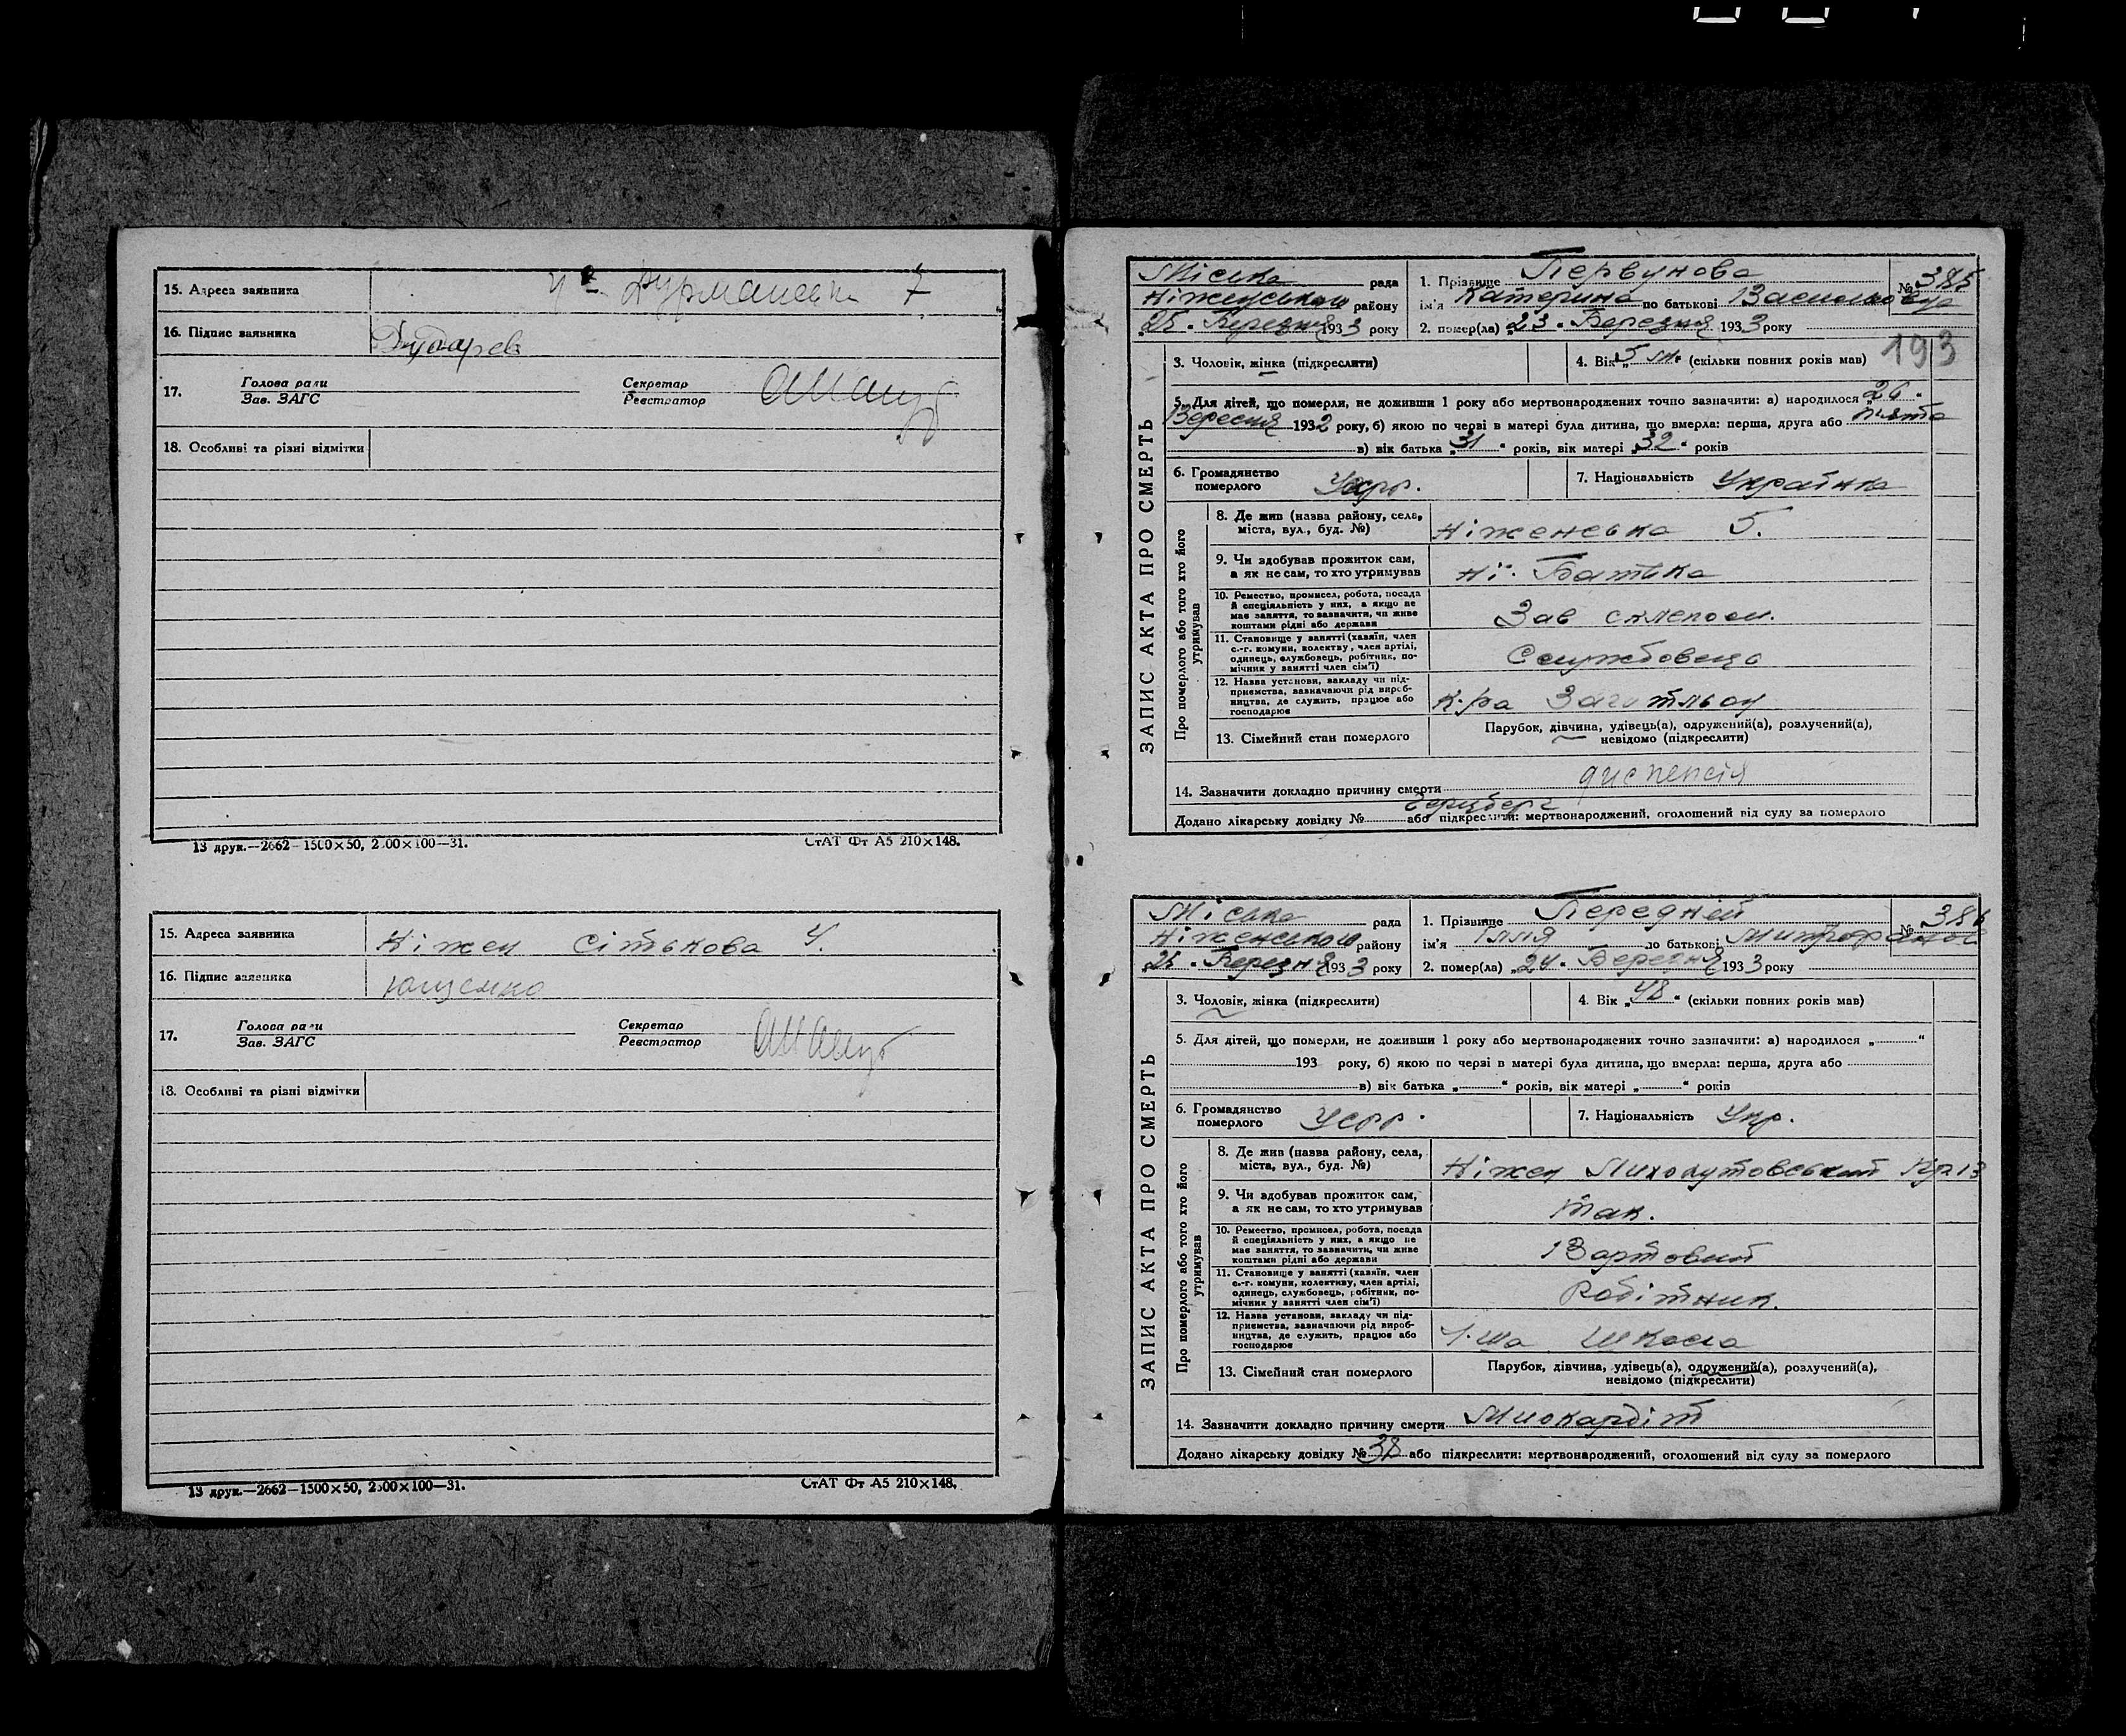 15. Адреса заявника 7
16. Підпис заявника
17. Голова ради
Зав. ЗАГС
Секретар
Реєстратор
18. Особливі та різні відмітки
13 друк.—2662—1500×50, 2500×100—31. СтАТ Фт А5 210×148.
15. Адреса заявника Ніжен Сітькова
16. Підпис заявника Ющенко
17. Голова ради
Зав. ЗАГС
Секретар
Реєстратор
18. Особливі та різні відмітки
13 друк.—2662—1500×50, 2500×100—31. СтАТ Фт А5 210×148.
ЗАПИС АКТА ПРО СМЕРТЬ
Міська рада
Ніженського району
„25“ Березня 1933 року
1. Прізвище Первунова № 385
ім'я Катерина по батькові Васильовна
2. помер(ла) „23“ Березня 1933 року
193
3. Чоловік, жінка (підкреслити)
4. Вік „5 м.“ (скільки повних років мав)
5. Для дітей, що померли, не доживши 1 року або мертвонароджених точно зазначити: а) народилося „26“
Вересня 1932 року, б) якою по черві в матері була дитина, що вмерла: перша, друга або п'ята
в) вік батька „31“ років, вік матері „32“ років
6. Громадянство
померлого Усрр.
7. Національність Українка
Про померлого або того хто його
утримував
8. Де жив (назва району, села,
міста, вул., буд. №) Ніженська 5.
9. Чи здобував прожиток сам,
а як не сам, то хто утримував Ні. Батько
10. Ремество, промисел, робота, посада
й спеціяльність у них, а якщо не
має заняття, то зазначити, чи живе
коштами рідні або держави Зав склепом.
11. Становище у занятті (хазяїн, член
с.-г. комуни, колективу, член артілі,
одинець, службовець, робітник, по-
мічник у занятті член сім'ї) Службовець
12. Назва установи, закладу чи під-
приємства, зазначаючи рід вироб-
ництва, де служить, працює або
господарює К-ра Заготльон
13. Сімейний стан померлого
Парубок, дівчина, удівець(а), одружений(а), розлучений(а),
невідомо (підкреслити)
14. Зазначити докладно причину смерти диспепсія
Додано лікарську довідку № або підкреслити: мертвонароджений, оголошений від суду за померлого
ЗАПИС АКТА ПРО СМЕРТЬ
Міська рада
Ніженського району
„25“ Березня 1933 року
1. Прізвище Передній № 386
ім'я Ілля по батькові Митрофанов
2. помер(ла) „24“ Березня 1933 року
3. Чоловік, жінка (підкреслити)
4. Вік „48“ (скільки повних років мав)
5. Для дітей, що померли, не доживши 1 року або мертвонароджених точно зазначити: а) народилося „ “
193 року, б) якою по черзі в матері була дитина, що вмерла: перша, друга або
в) вік батька „ “ років, вік матері „ “ років
6. Громадянство
померлого Усрр.
7. Національність Укр.
Про померлого або того хто його
утримував
8. Де жив (назва району, села,
міста, вул., буд. №) Ніжен 13
9. Чи здобував прожиток сам,
а як не сам, то хто утримував так.
10. Ремество, промисел, робота, посада
й спеціяльність у них, а якщо не
має заняття, то зазначити, чи живе
коштами рідні або держави Вартовий
11. Становище у занятті (хазяїн, член
с.-г. комуни, колективу, член артілі,
одинець, службовець, робітник, по-
мічник у занятті член сім'ї) Робітник.
12. Назва установи, закладу чи під-
приємства, зазначаючи рід вироб-
ництва, де служить, працює або
господарює Школа
13. Сімейний стан померлого
Парубок, дівчина, удівець(а), одружений(а), розлучений(а),
невідомо (підкреслити)
14. Зазначити докладно причину смерти Миокардіт
Додано лікарську довідку № 38 або підкреслити: мертвонароджений, оголошений від суду за померлого